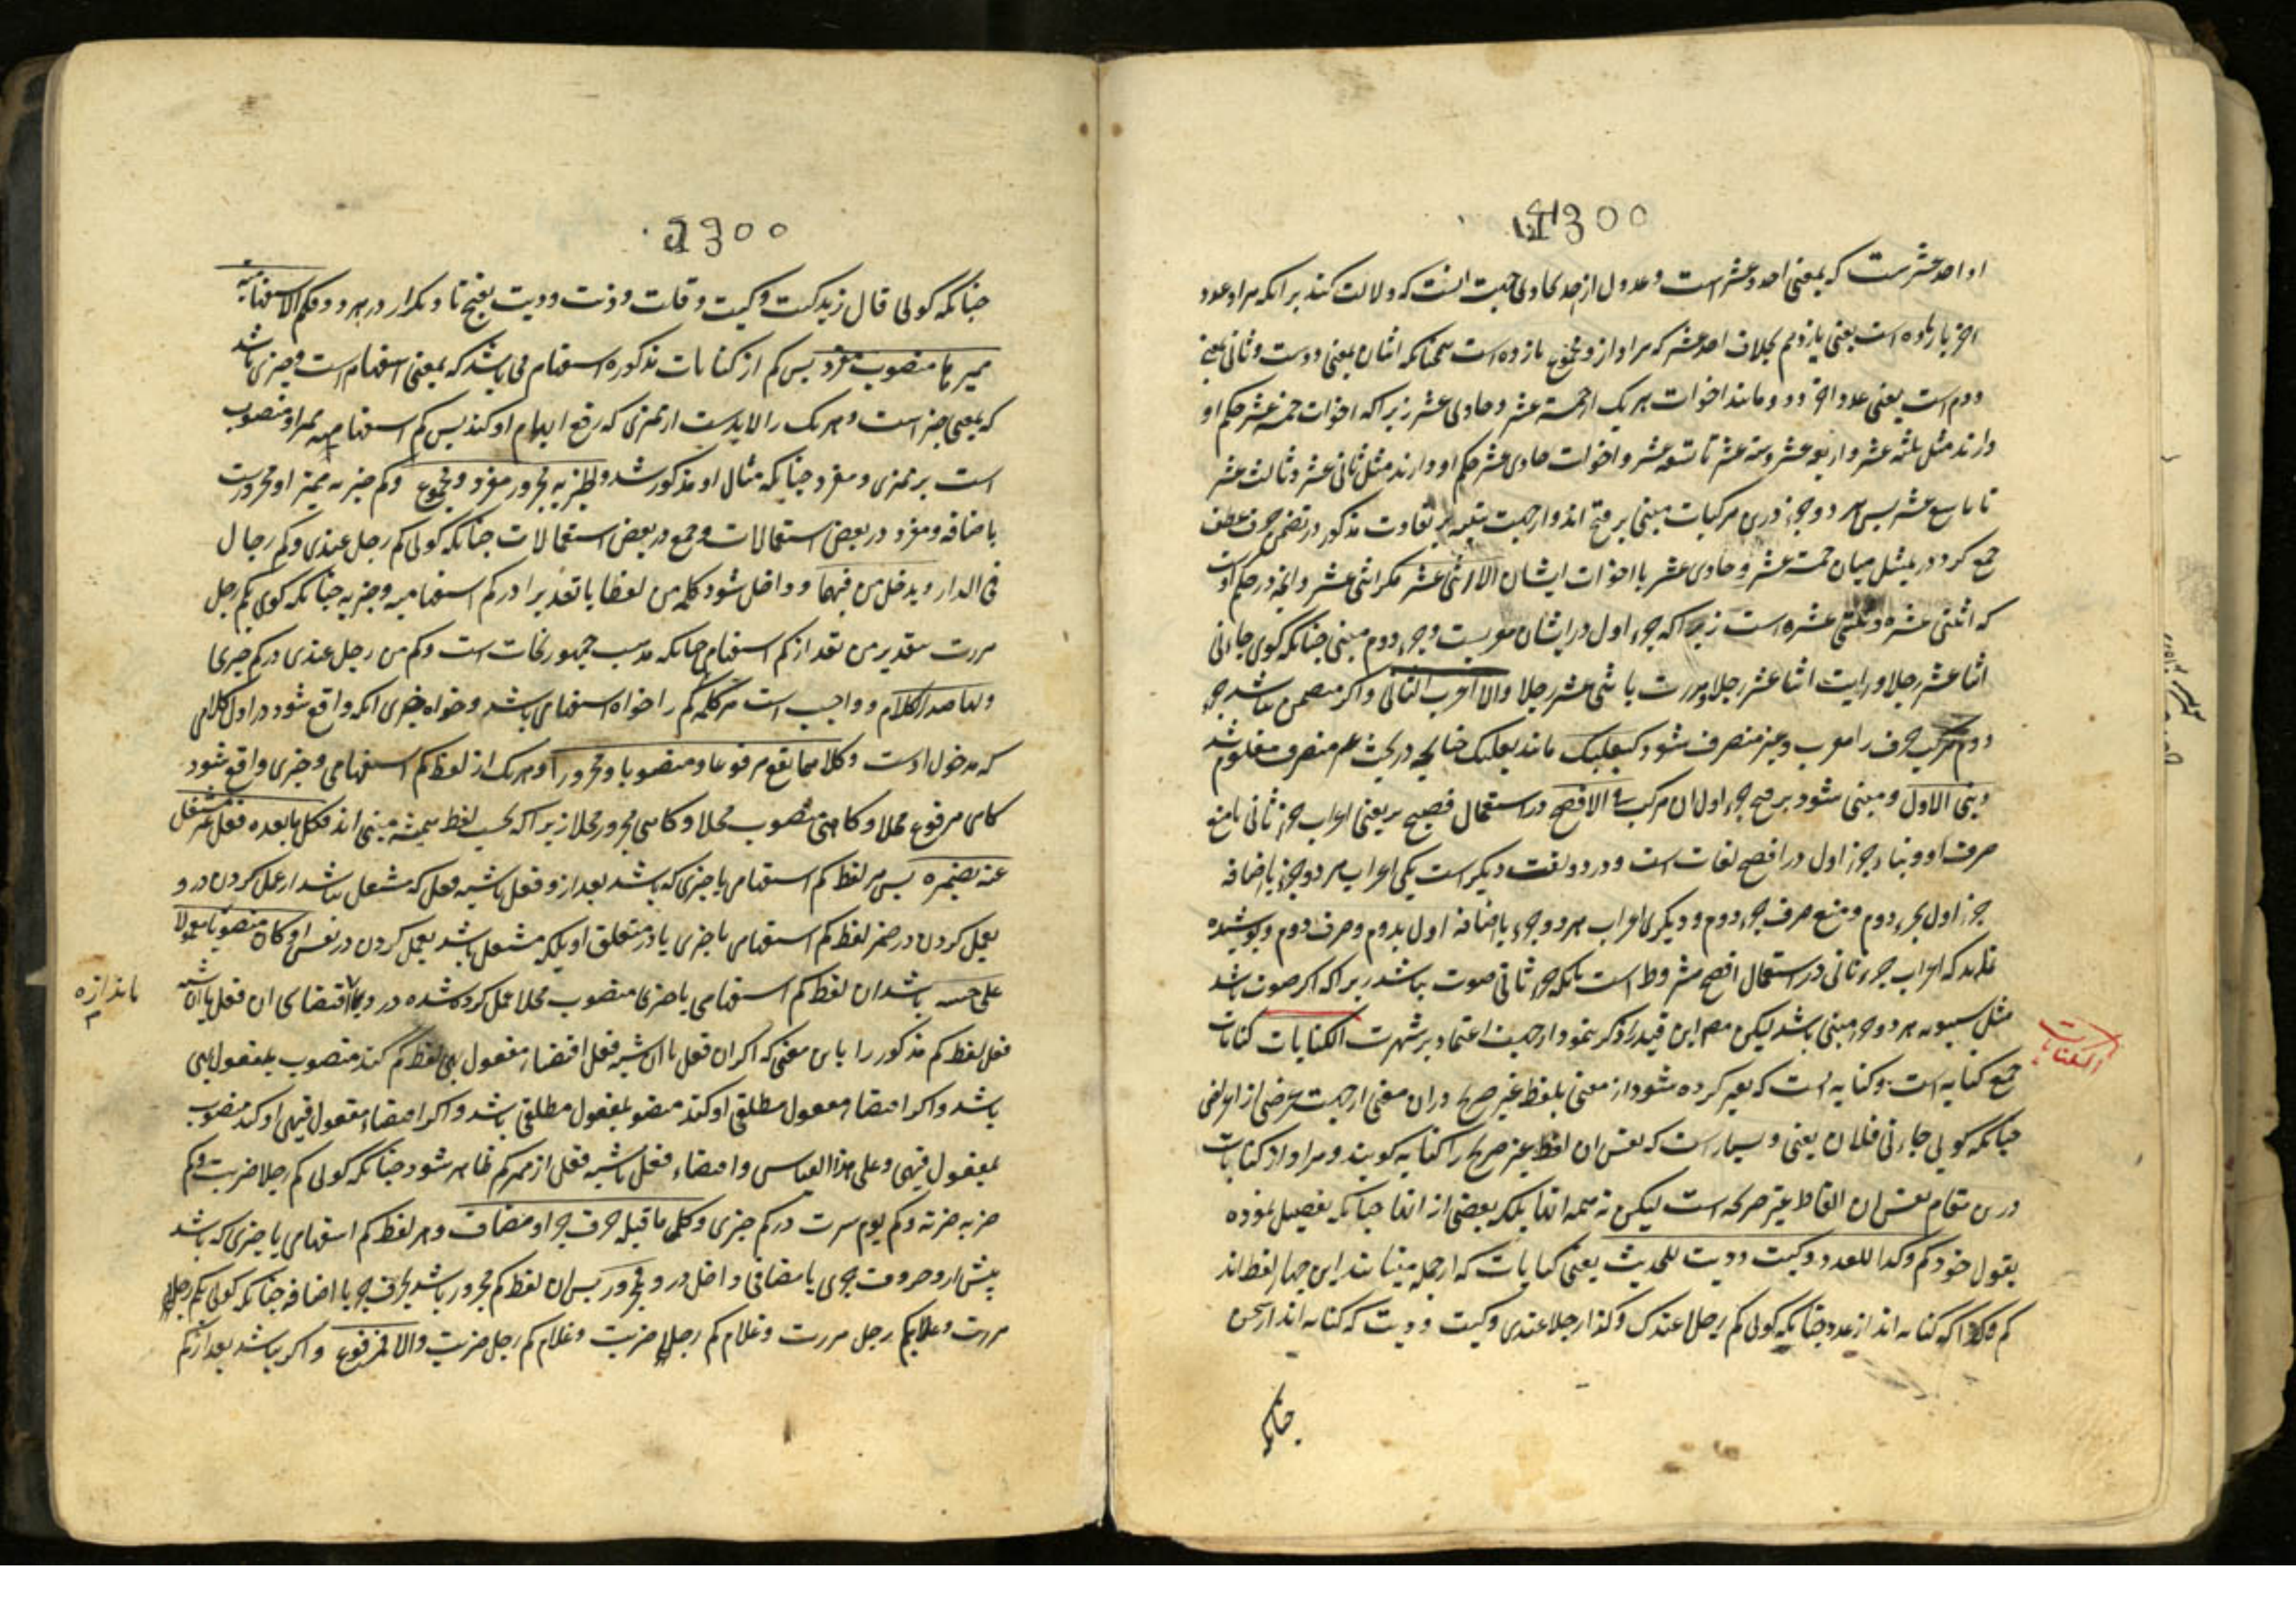 1300
او احد عشرست که بمعنی احد و عشر است و عدول از احد بحادی جهت انست که دلالت کند بر انکه مراد عدد
اخر یازده است یعنی یازدهم بخلاف احد عشر که مراد ازو مجموع یازده است همچنانکه اثنان بمعنی دوست و ثانی بمعنی
دوم است یعنی عدد اخر دو و مانند اخوات هر یک از خمسة عشر و حادی عشر زیرا که اخوات خمسة عشر حکم او
دارند مثل ثلثة عشر و اربعة عشر و ستة عشر تا تسعة عشر و اخوات حادی عشر حکم او دارند مثل ثانی عشر و ثالث عشر
تا تاسع عشر پس هر دو جزء درین مرکبات مبنی بر فتح اند و از جهت تنبیه بر تفاوت مذکور در تضمن حرف عطف
جمع کرد در تمثیل میان خمسة عشر و حادی عشر با اخوات ایشان الا اثنی عشر مکر اثنی عشر و انچه در حکم اوست
که اثنتی عشرة و ثنتی عشرة است زیرا که جزء اول در ایشان معربست و جزء دوم مبنی چنانکه کوی جاءنی
اثنا عشر رجلا و رایت اثنا عشر رجلا و مررت باثنی عشر رجلا والا اعرب الثانی و اکر متضمن نباشد جزء
دوم مرکب حرف را معرب و غیر منصرف شود کبعلبک مانند بعلبک چنانچه در بحث غیر منصرف معلوم شد
و بنی الاول و مبنی شود بر فتح جزء اول ان مرکب فی الافصح در استعمال فصیح تر یعنی اعراب جزء ثانی با منع
صرف او و بناء جزء اول در افصح لغات است و درو دو لغت دیکر است یکی اعراب هر دو جزء باضافه
جزء اول بجزء دوم و منع صرف جزء دوم و دیکری اعراب هر دو جزء باضافه اول بدوم و صرف دوم و پوشیده
نماند که اعراب جزء ثانی در استعمال افصح مشروط است بانکه جزء ثانی صوت نباشد زیرا که اکر صوت باشد
مثل سیبویه هر دو جزء مبنی باشد لیکن مص این قید را ذکر ننمود از جهت اعتماد بر شهرت الکنایات کنایات
جمع کنایه است و کنایه انست که تعبیر کرده شود از معنی بلفظ غیر صریح در ان معنی از جهت غرضی از اغراض
چنانکه کویی جاءنی فلان یعنی و بسیارست که نفس ان لفظ غیر صریح را کنایه کویند و مراد از کنایات
درین مقام نفس ان الفاظ غیر صریحه است لیکن نه همه انها بلکه بعضی از انها چنانکه تفصیل نموده
بقول خود کم و کذا للعدد و کیت و ذیت للحدیث یعنی کنایات که از جمله مبنیاتند این چهار لفظ اند
کم و کذا که کنایه اند از عدد چنانکه کوئی کم رجلا عندک و کذا رجلا عندی و کیت و ذیت که کنایه اند از سخن
الکنایات
چنانکه
1300
چنانکه کوئی قال زید کیت و کیت و قلت ذیت و ذیت بفتح تا و تکرار در هر دو فکم الاستفهامیة
ممیزها منصوب مفرد پس کم از کنایات مذکوره استفهام می باشد که بمعنی استفهام است و خبری باشد
که بمعنی خبر است و هر یک را لابدست از تمیزی که رفع ابهام او کند پس کم استفهامیه ممیز او منصوب
است بر تمیزی و مفرد چنانکه مثال او مذکور شد و الخبریة مجرور مفرد و مجموع و کم خبریه ممیز او مجرورست
باضافه و مفرد در بعض استعمالات و جمع در بعض استعمالات چنانکه کوئی کم رجل عندی و کم رجال
فی الدار و یدخل من فیهما و داخل شود کلمه من لفظا یا تقدیرا در کم استفهامیه و خبریه چنانکه کوی بکم رجل
مررت بتقدیر من بعد از کم استفهامی چنانکه مذهب جمهور نحات است و کم من رجل عندی در کم خبری
و لهما صدر الکلام و واجب است مر کلمه کم را خواه استفهامی باشد و خواه خبری انکه واقع شود در اول کلامی
که مدخول اوست و کلاهما یقع مرفوعا و منصوبا و مجرورا و هر یک از لفظ کم استفهامی و خبری واقع شود
کاهی مرفوع محلا و کاهی منصوب محلا و کاهی مجرور محلا زیرا که بحسب لفظ همیشه مبنی اند فکل ما بعده فعل غیر مشتغل
عنه بضمیره پس هر لفظ کم استفهامی یا خبری که باشد بعد ازو فعل یا شبه فعل که مشتغل نباشد از عمل کردن درو
بعمل کردن در ضمیر لفظ کم استفهامی یا خبری یا در متعلق او بلکه مشتغل باشد بعمل کردن در نفس او کان منصوبا معمولا
علی حسبه باشد ان لفظ کم استفهامی یا خبری منصوب محلا عمل کرده شده درو باقتضای ان فعل یا ان شبه
فعل لفظ کم مذکور را باین معنی که اکر ان فعل یا ان شبه فعل اقتضاء مفعول بهی لفظ کم کند منصوب بمفعول بهی
باشد و اکر اقتضاء مفعول مطلقی او کند منصوب بمفعول مطلقی باشد و اکر اقتضاء مفعول فیهی او کند منصوب
بمفعول فیهی و علی هذا القیاس و اقتضاء فعل یا شبه فعل از ممیز کم ظاهر شود چنانکه کوئی کم رجلا ضربت و کم
ضربة ضربت و کم یوم سرت در کم خبری و کل ما قبله حرف جر او مضاف و هر لفظ کم استفهامی یا خبری که باشد
پیش ازو حروف جری یا مضافی داخل درو فمجرور پس ان لفظ کم مجرور باشد بحرف جر یا اضافه چنانکه کوئی بکم رجلا
مررت و غلام کم رجل مررت و غلام کم رجلا ضربت و غلام کم رجل ضربت والا فمرفوع و اکر نباشد بعد از کم
باندازه